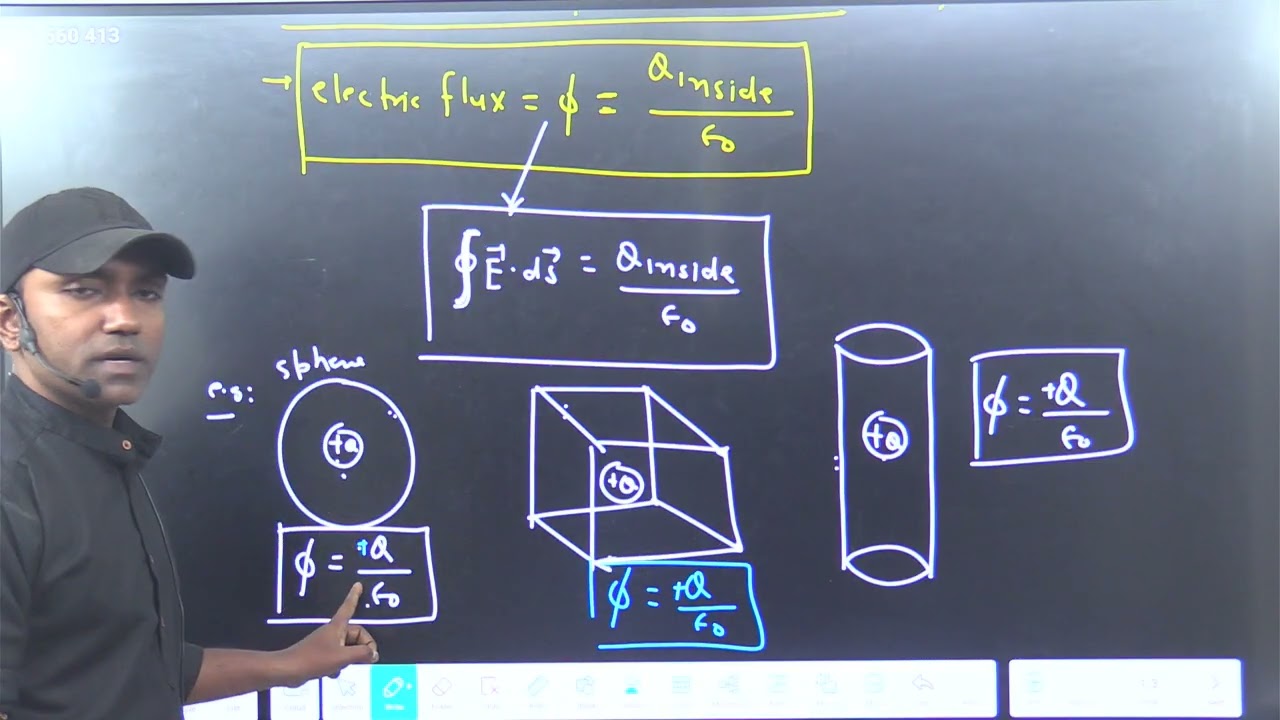 660 413
electric flux = ϕ = Qinside / ε0
∮ E⃗ · ds⃗ = Qinside / ε0
e.g: sphere
+Q
ϕ = +Q / ε0
+Q
ϕ = +Q / ε0
+Q
ϕ = +Q / ε0